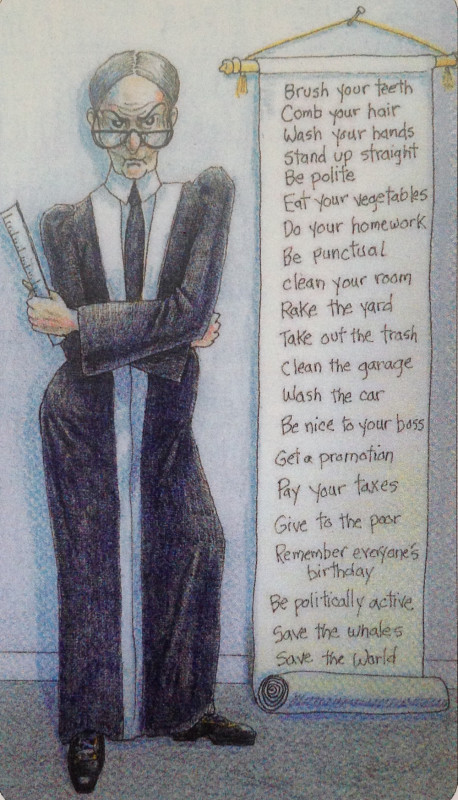 Brush your teeth
Comb your hair
Wash your hands
Stand up straight
Be polite
Eat your vegetables
Do your homework
Be punctual
clean your room
Rake the yard
Take out the trash
Clean the garage
Wash the car
Be nice to your boss
Get a promotion
Pay your taxes
Give to the poor
Remember everyone's
birthday
Be politically active
Save the whales
Save the world